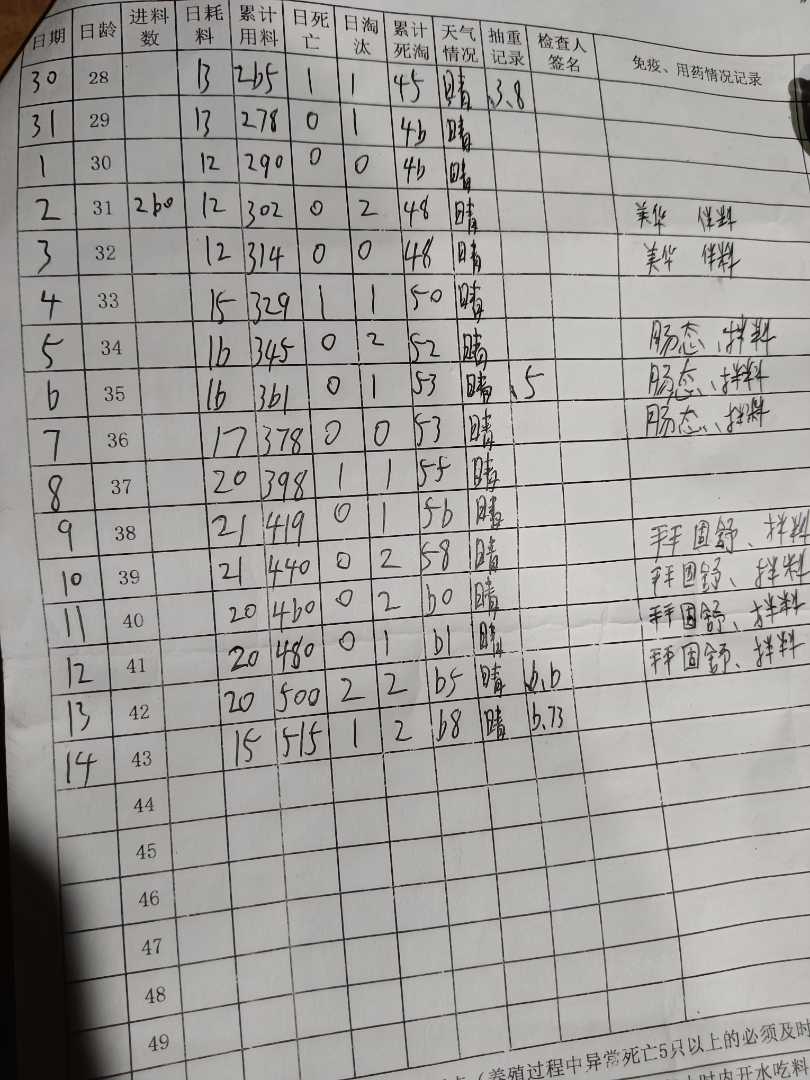 日期 日龄 进料数 日耗料 累计用料 日死亡 日淘汰 累计死淘 天气情况 抽重记录 检查人签名 免疫、用药情况记录
30 28 13 265 1 1 45 晴 3.8
31 29 13 278 0 1 46 晴
1 30 12 290 0 0 46 晴
2 31 260 12 302 0 2 48 晴 美华 伴料
3 32 12 314 0 0 48 晴 美华 伴料
4 33 15 329 1 1 50 晴
5 34 16 345 0 2 52 晴 肠态、拌料
6 35 16 361 0 1 53 晴 5 肠态、拌料
7 36 17 378 0 0 53 晴 肠态、拌料
8 37 20 398 1 1 55 晴
9 38 21 419 0 1 56 晴 固舒、拌料
10 39 21 440 0 2 58 晴 固舒、拌料
11 40 20 460 0 2 60 晴 固舒、拌料
12 41 20 480 0 1 61 晴 固舒、拌料
13 42 20 500 2 2 65 晴 6.6
14 43 15 515 1 2 68 晴 6.73
44
45
46
47
48
49
（养殖过程中异常死亡5只以上的必须及时
时内开水吃料